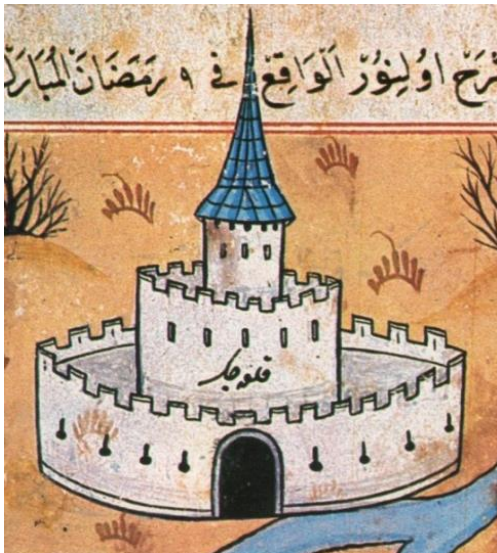 شَرَحْ اوُلِنوُرْ اَلْوَاقِعْ فِے ٩ رَمَضَانَ الْمُبَارَك
قلعه